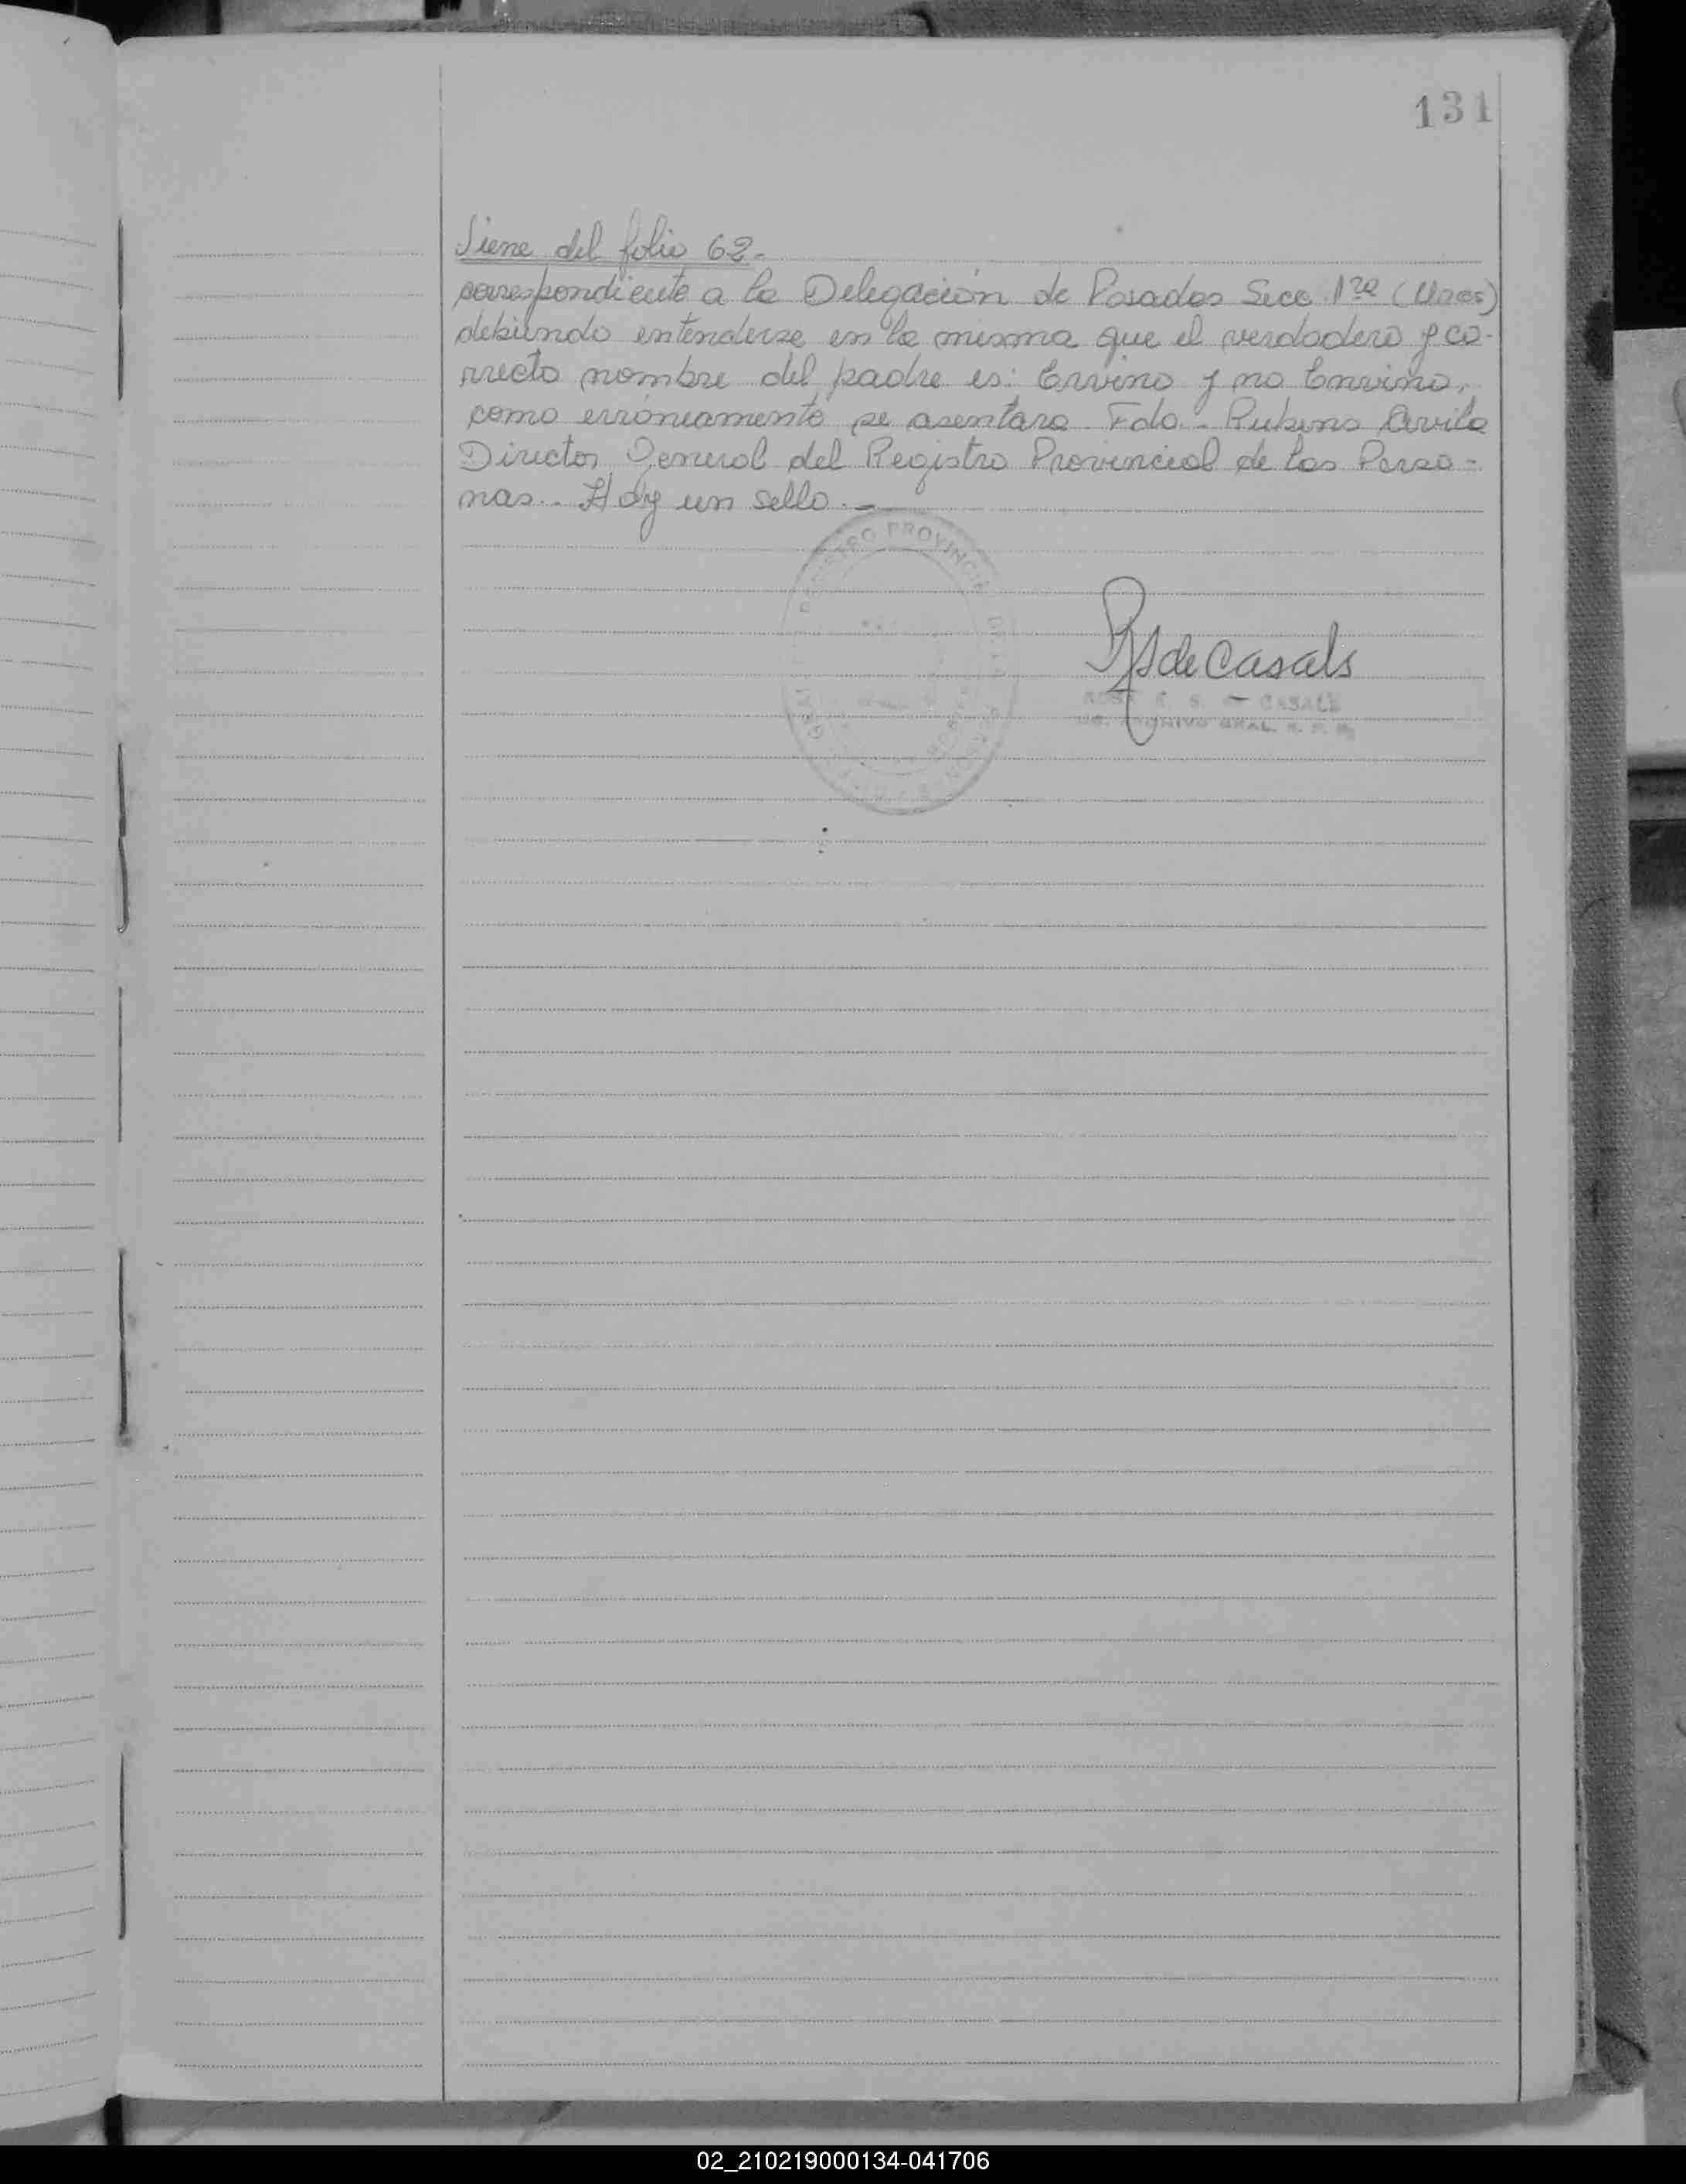 131
Viene del folio 62.-
correspondiente a la Delegación de Posadas Secc. 1ra
debiendo entenderse en la misma que el verdadero y co-
rrecto nombre del padre es: Ervino y no Enrino,
como erróneamente se asentara Fdo.- Rubens Avila
Director General del Registro Provincial de las Perso-
nas.- Hay un sello.-
REGISTRO PROVINCIAL DE LAS
de Casals
CASALS
ARCHIVO GRAL.
02_210219000134-041706